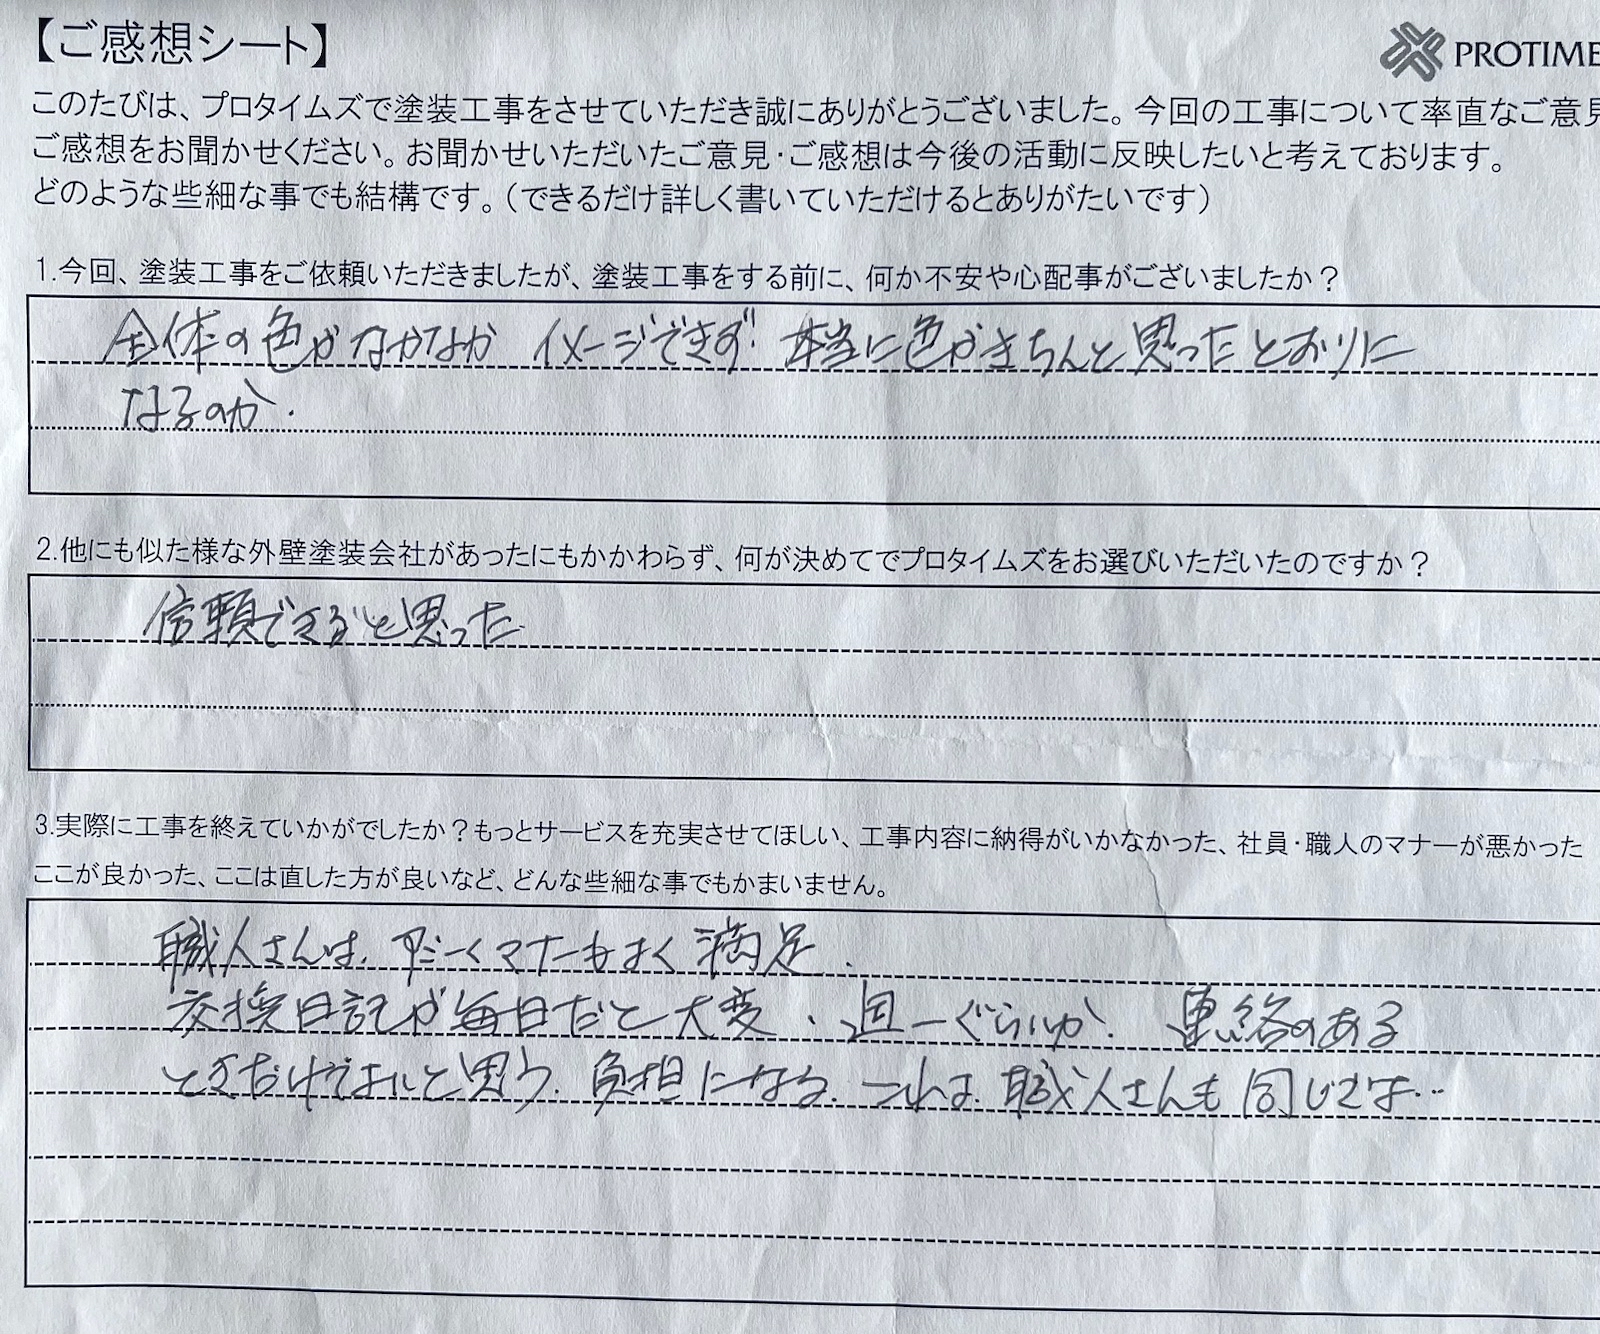 【ご感想シート】
PROTIME
このたびは、プロタイムズで塗装工事をさせていただき誠にありがとうございました。今回の工事について率直なご意見
ご感想をお聞かせください。お聞かせいただいたご意見・ご感想は今後の活動に反映したいと考えております。
どのような些細な事でも結構です。（できるだけ詳しく書いていただけるとありがたいです）
1.今回、塗装工事をご依頼いただきましたが、塗装工事をする前に、何か不安や心配事がございましたか？
全体の色がなかなか イメージできず 本当に色がきちんと思ったとおりに
なるのか.
2.他にも似た様な外壁塗装会社があったにもかかわらず、何が決めてでプロタイムズをお選びいただいたのですか？
信頼できると思った
3.実際に工事を終えていかがでしたか？もっとサービスを充実させてほしい、工事内容に納得がいかなかった、社員・職人のマナーが悪かった
ここが良かった、ここは直した方が良いなど、どんな些細な事でもかまいません。
職人さんは、マナーもよく 満足.
交換日記が毎日だと大変. 週一ぐらいか. 連絡のある
ときだけでよいと思う. 負担になる. これは、職人さんも 同じでは…